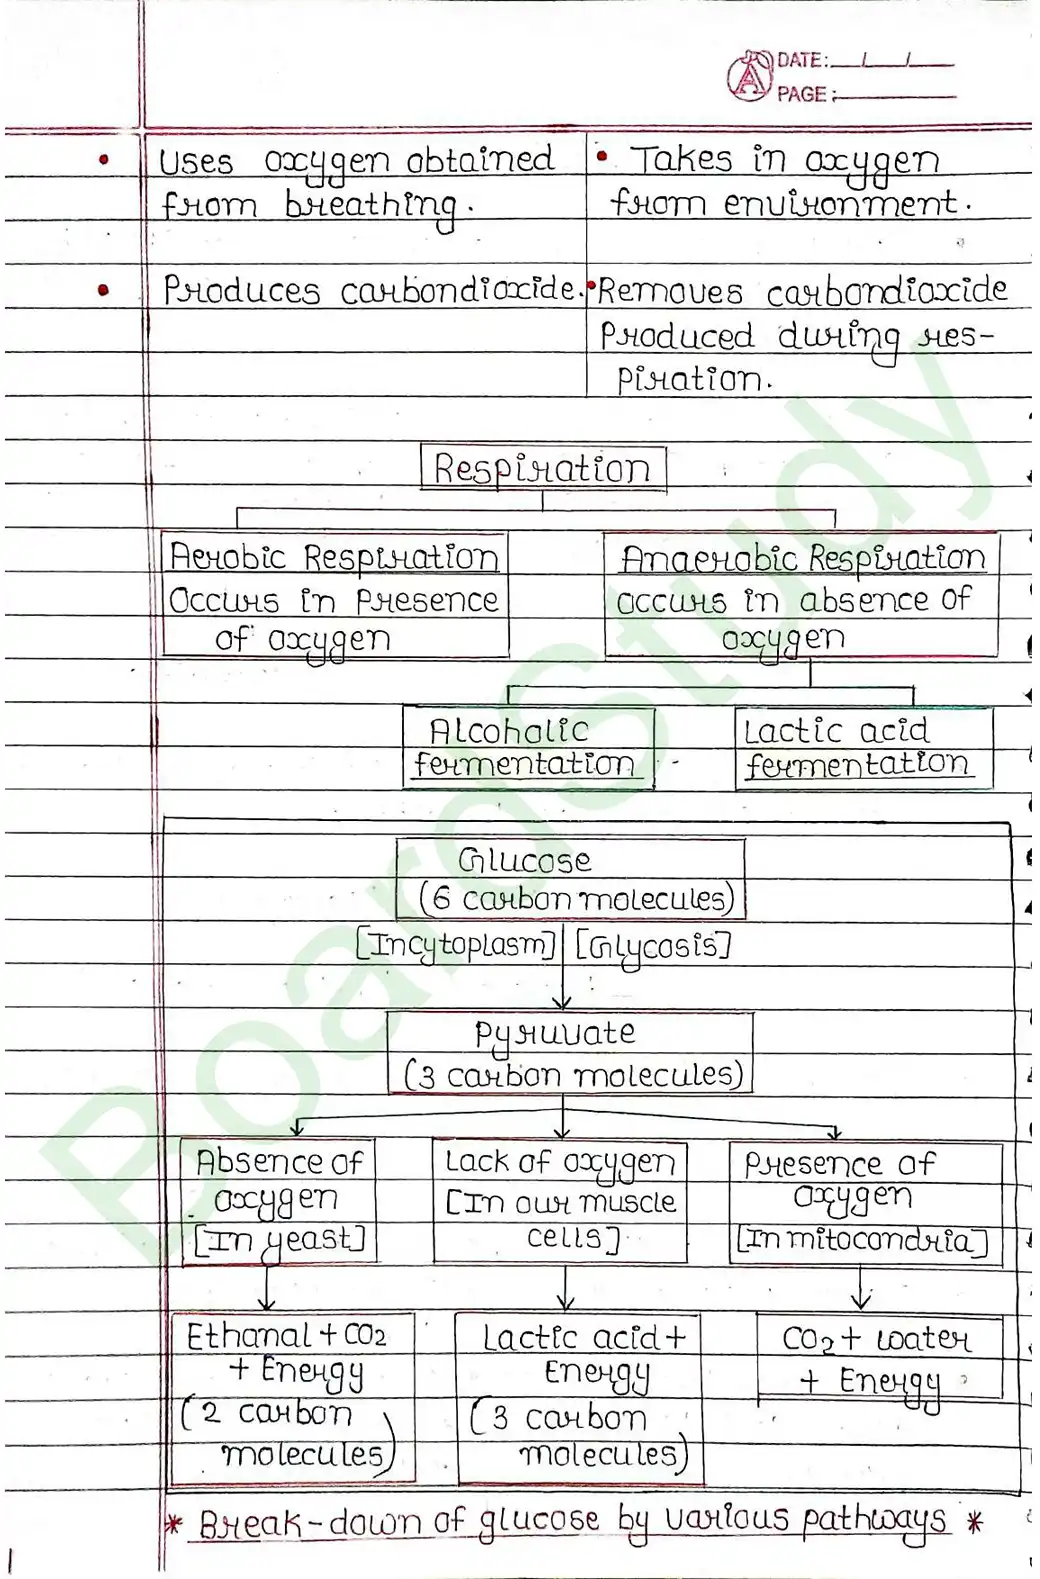 DATE: / /
PAGE :
• Uses oxygen obtained
from breathing.
• Takes in oxygen
from environment.
• Produces carbondioxide.
• Removes carbondioxide
Produced during res-
piration.
Respiration
Aerobic Respiration
Occurs in Presence
of oxygen
Anaerobic Respiration
occurs in absence of
oxygen
Alcoholic
fermentation
Lactic acid
fermentation
Glucose
(6 carbon molecules)
[Incytoplasm] [Glycosis]
Pyruvate
(3 carbon molecules)
Absence of
oxygen
[In yeast]
Lack of oxygen
[In our muscle
cells]
Presence of
oxygen
[In mitocondria]
Ethanal + CO2
+ Energy
(2 carbon
molecules)
Lactic acid +
Energy
(3 carbon
molecules)
CO2 + water
+ Energy
* Break-down of glucose by various pathways *
BoardStudy